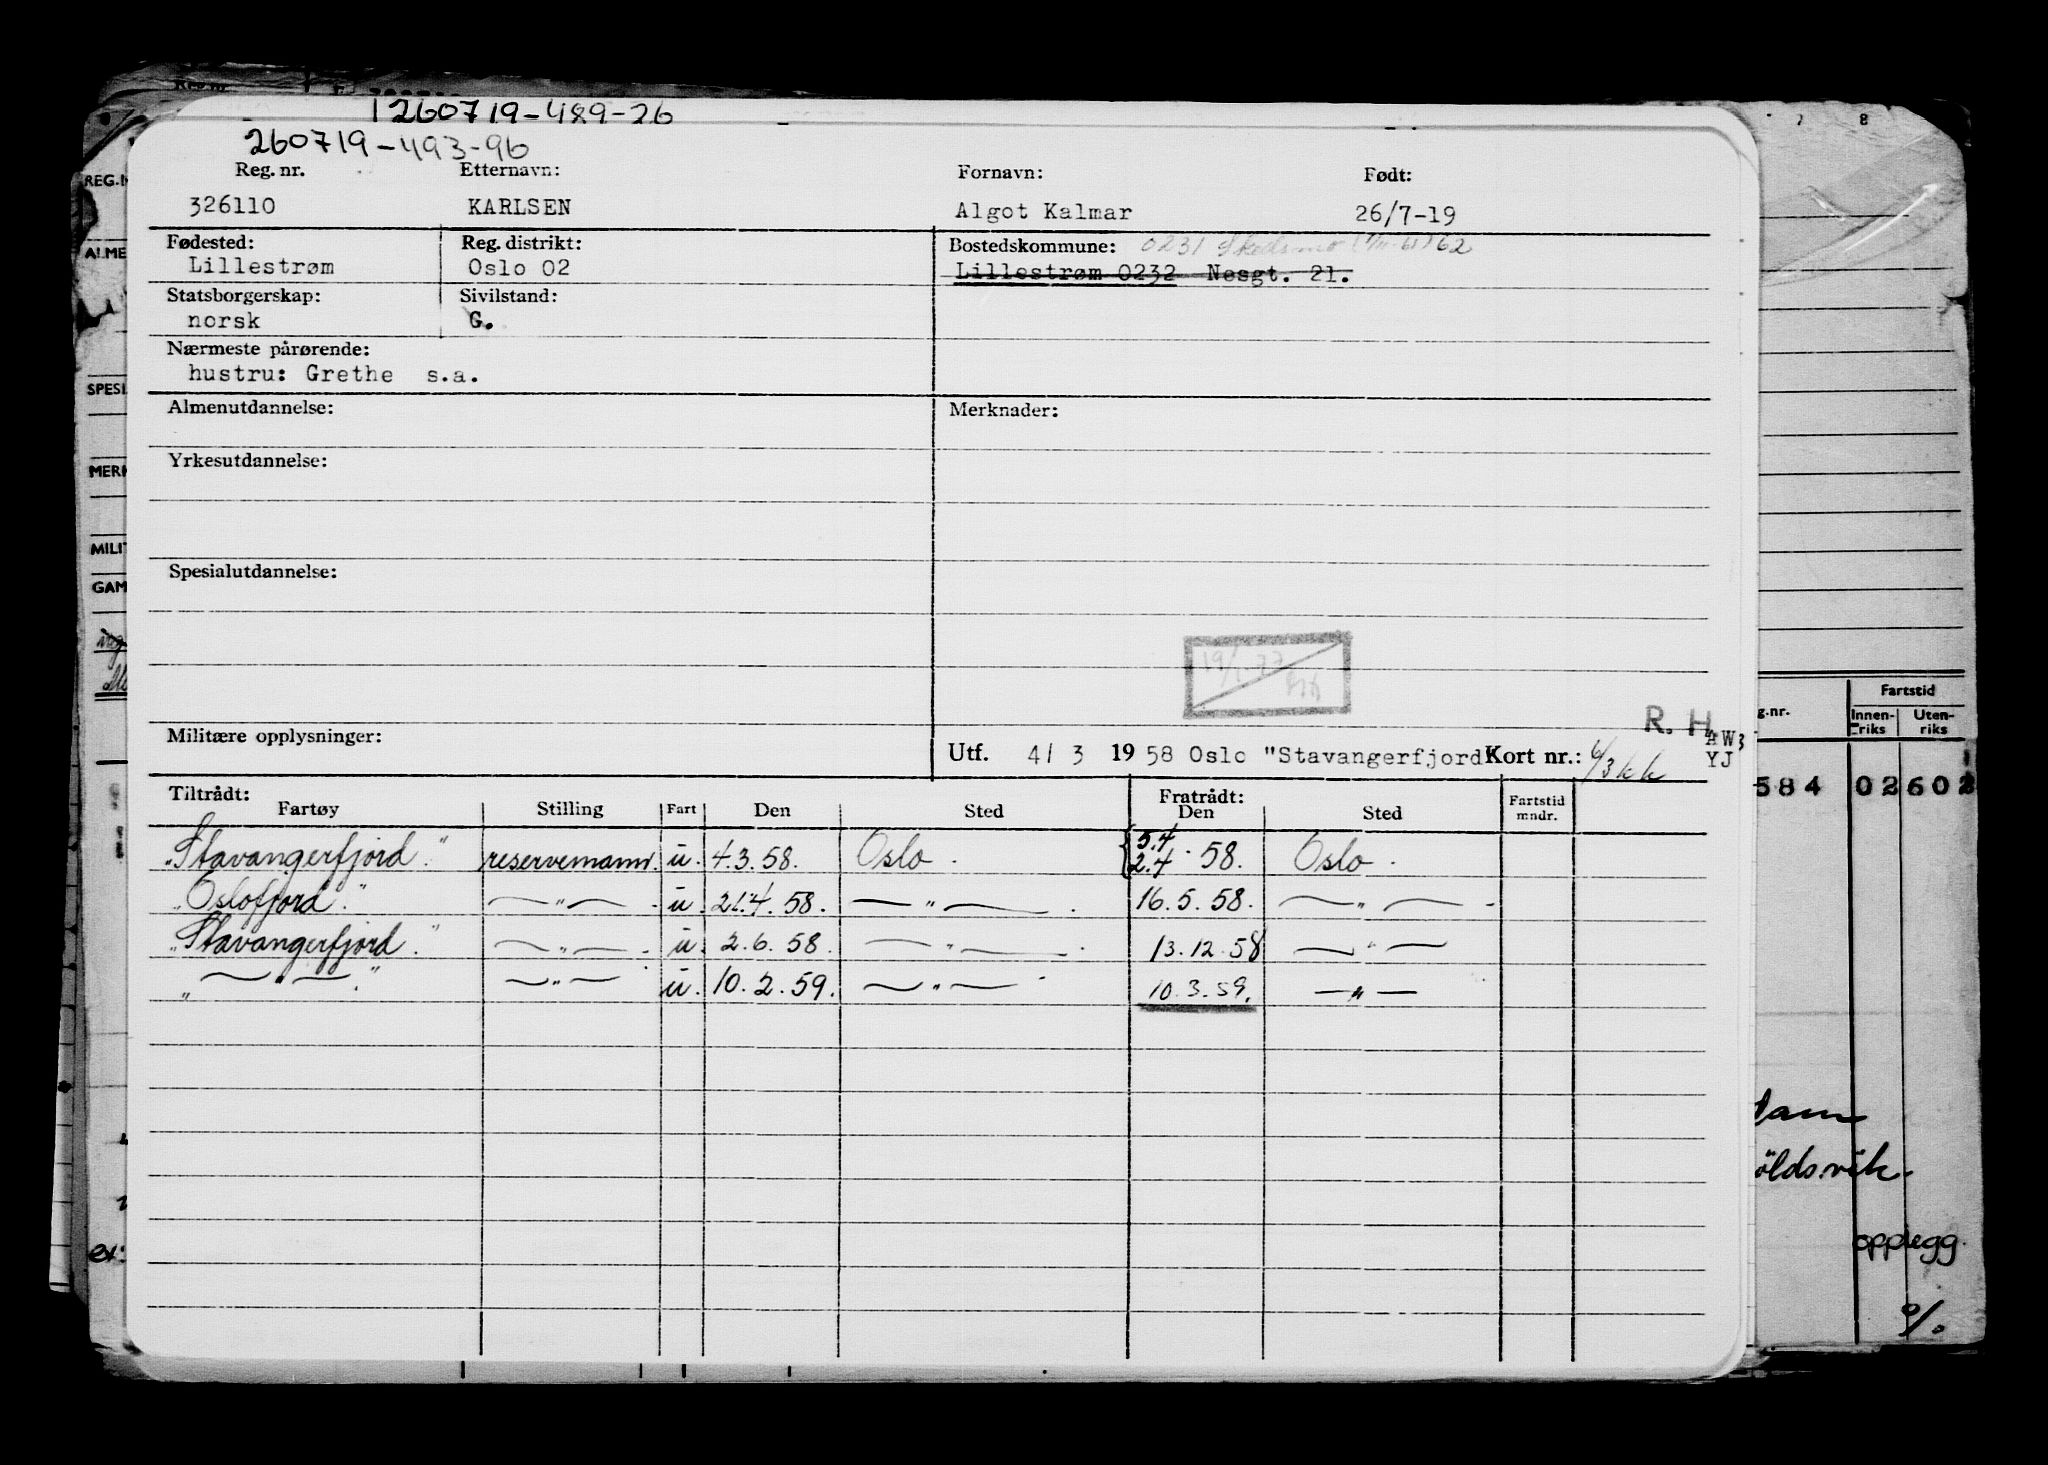 260719-489-26
260719-493-96
Reg. nr. Etternavn: Fornavn: Født:
326110 KARLSEN Algot Kalmar 26/7-19
Fødested: Reg. distrikt: Bostedskommune: 0231 Skedsmo 62
Lillestrøm Oslo 02 Lillestrøm 0232 Nesgt. 21.
Statsborgerskap: Sivilstand:
norsk G.
Nærmeste pårørende:
hustru: Grethe s.a.
Almenutdannelse: Merknader:
Yrkesutdannelse:
Spesialutdannelse:
19/1 77
R. H.
Militære opplysninger:
Utf. 4/ 3 1958 Oslo "Stavangerfjord Kort nr.: 6/3 kk
AW3
YJ
Tiltrådt: Fratrådt:
Fartøy Stilling Fart Den Sted Den Sted Fartstid mndr.
"Stavangerfjord." reservemann. u. 4.3.58. Oslo. { 5.4 2.4 . 58. Oslo.
"Oslofjord". —"— . u. 21.4.58. —"— . 16.5.58. —"— .
"Stavangerfjord." —"— . u. 2.6.58. —"— . 13.12.58 —"—
" —"— ." —"— u. 10.2.59. —"— 10.3.59. —"—
REG.N
ALME
SPESI
MERK
MILIT
GAM
7 8
g.nr.
Fartstid
Innen-riks Uten-riks
584 02 602
öldsvik.
opplegg.
%.